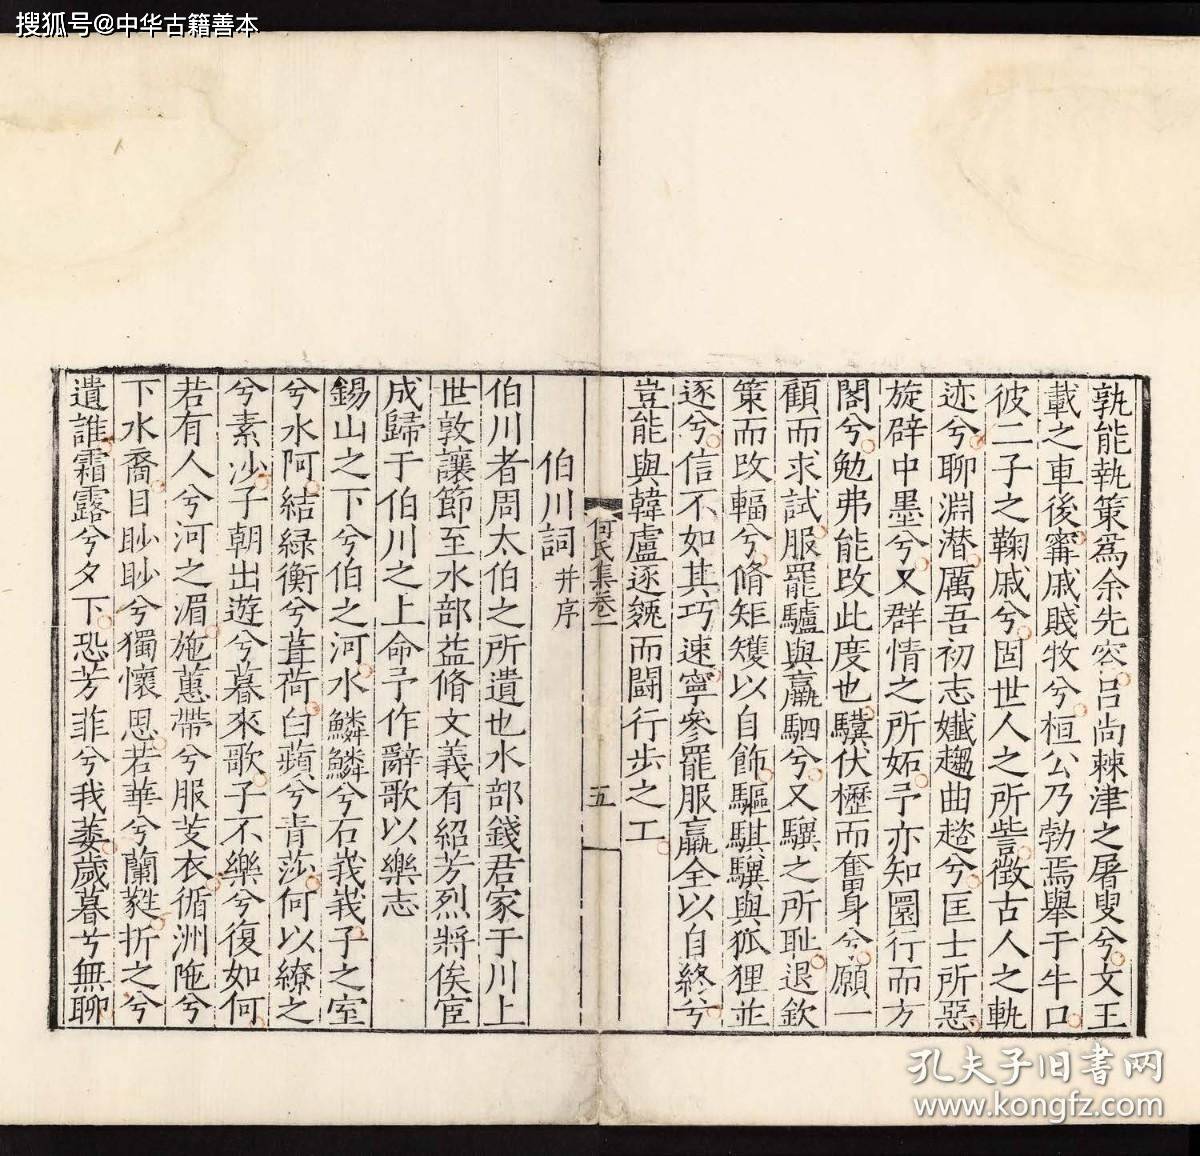 搜狐号@中华古籍善本
孰能執策爲余先容呂尚棘津之屠叟兮文王
載之車後甯戚賤牧兮桓公乃勃焉舉于牛口
彼二子之鞠戚兮固世人之所訾徵古人之軌
迹兮聊淵潜厲吾初志孅趨曲趦兮匡士所惡
旋辟中墨兮又群情之所妬予亦知圜行而方
閣兮勉弗能改此度也驥伏櫪而奮身兮願一
顧而求試服罷驢與羸駟兮又驥之所耻退欽
策而改輻兮脩矩矱以自飾驅騏驥與狐狸並
逐兮信不如其巧速寧參罷服羸全以自終兮
豈能與韓盧逐㕙而鬭行步之工
何氏集卷一
五
伯川詞并序
伯川者周太伯之所遺也水部錢君家于川上
世敦讓節至水部益脩文義有紹芳烈將俟宦
成歸于伯川之上命予作辭歌以樂志
錫山之下兮伯之河水鱗鱗兮石峩峩子之室
兮水阿結緑衡兮葺荷白蘋兮青莎何以繚之
兮素沙子朝出遊兮暮來歌子不樂兮復如何
若有人兮河之湄施蕙帶兮服芰衣循洲陁兮
下水裔目眇眇兮獨懷思若華兮蘭蕤折之兮
遺誰霜露兮夕下恐芳菲兮我萎歲暮兮無聊
孔夫子旧书网
www.kongfz.com